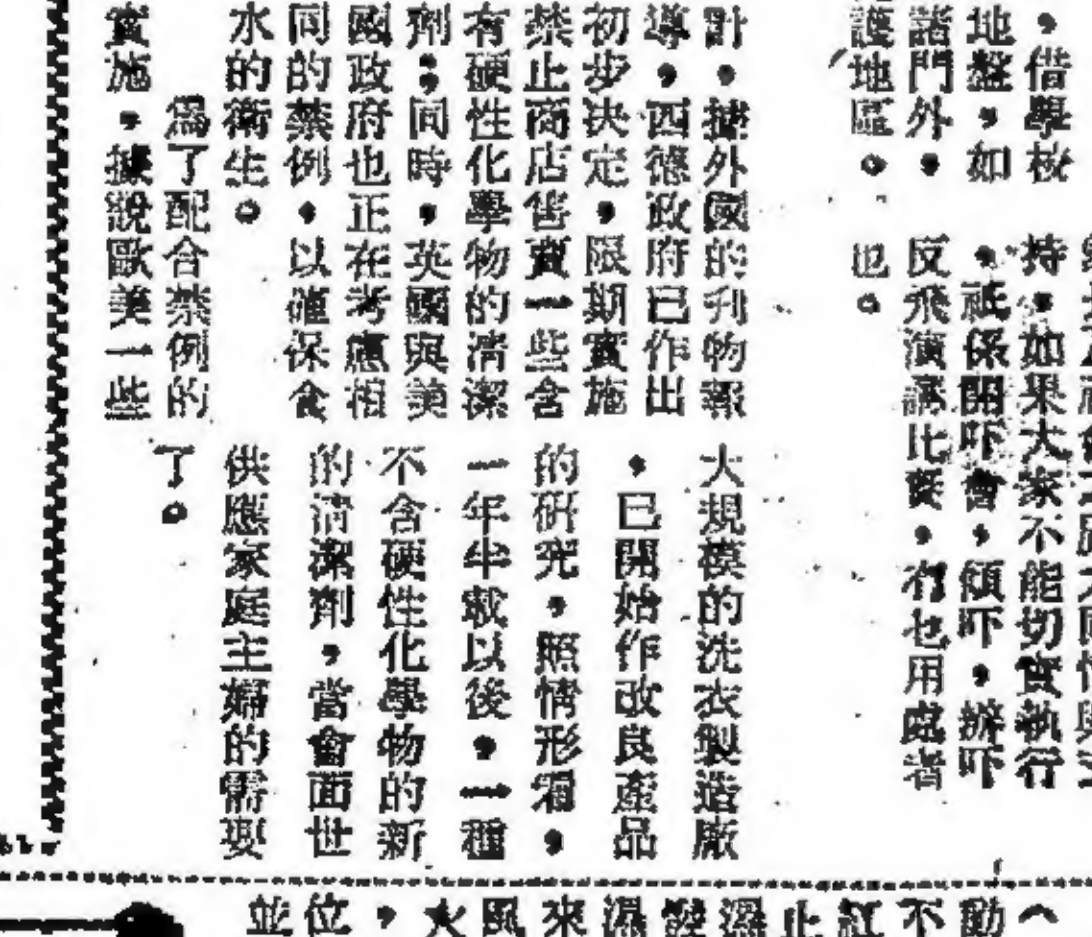 ，借學校
地盤，如
諸門外，
護地區。
持，如果大家不能切實執行
，祇係開吓會，傾吓，辦吓
反飛演講比賽，有乜用處者
也。
計，據外國的刋物報
導，西德政府已作出
初步決定，限期實施
禁止商店售賣一些含
有硬性化學物的清潔
劑；同時，英國與美
國政府也正在考慮相
同的禁例，以確保食
水的衛生。
爲了配合禁例的
實施，據說歐美一些
大規模的洗衣製造廠
，已開始作改良產品
的研究，照情形看，
一年半載以後，一種
不含硬性化學物的新
的清潔劑，當會面世
供應家庭主婦的需要
了。
動不紅止濕
濕來風火，位並